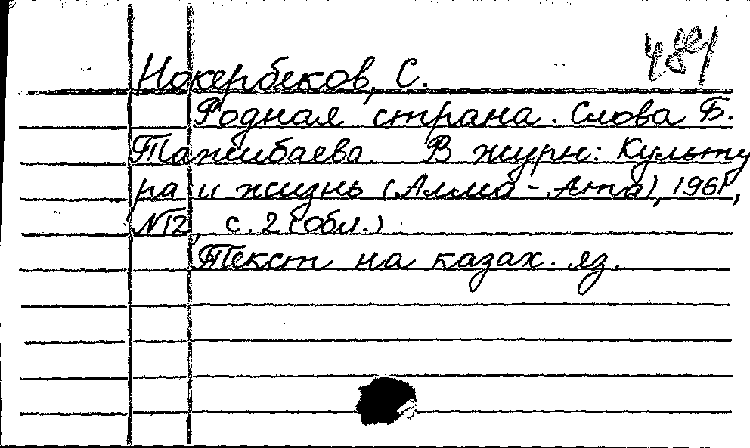 Нокербеков, С.
Родная страна. Слова Б.
Тажибаева. В журн: Культу
ра и жизнь (Алма-Ата), 1961,
№12, с. 2 (обл.)
Текст на казах. яз.